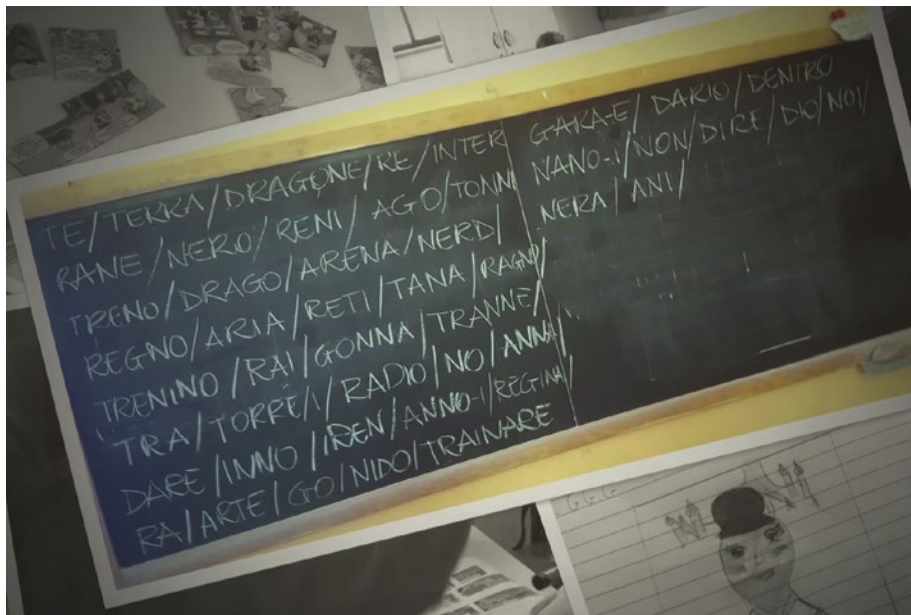 TE/TERRA/DRAGONE/RE/INTER
RANE/NERO/RENI/AGO/TONNI
TRENO/DRAGO/ARENA/NERD/
REGNO/ARIA/RETI/TANA/RAGNO/
TRENINO/RAI/GONNA/TRANNE/
TRA/TORRE/I/RADIO/NO/ANNA/
DARE/INNO/IREN/ANNO-I/REGINA/
RA/ARTE/GO/NIDO/TRAINARE
GARA-E/DARIO/DENTRO
NANO-I/NON/DIRE/DIO/NOI/
NERA/ANI/